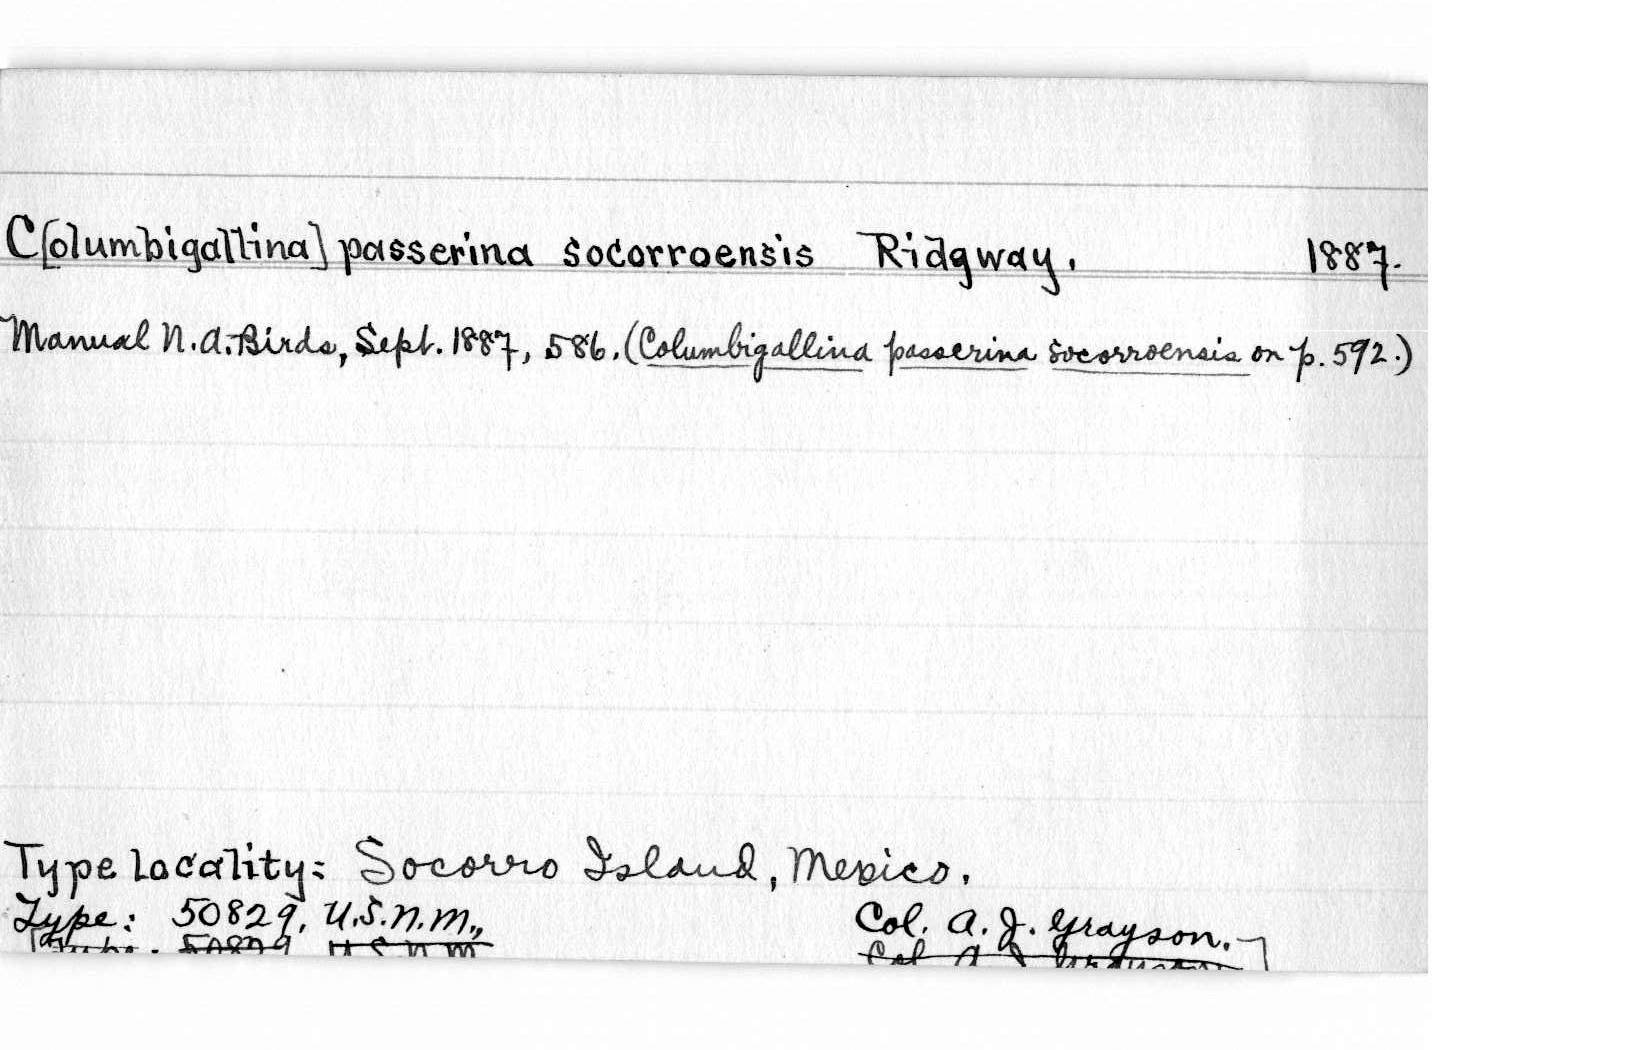 C[olumbigallina] passerina socorroensis Ridgway. 1887.
Manual N.A. Birds, Sept. 1887, 586. (Columbigallina passerina socorroensis on p. 592.)
Type locality: Socorro Island, Mexico.
Type: 50829, U.S.N.M., Col. A. J. Grayson.
Type: 50829 U S N M Col A J Grayson